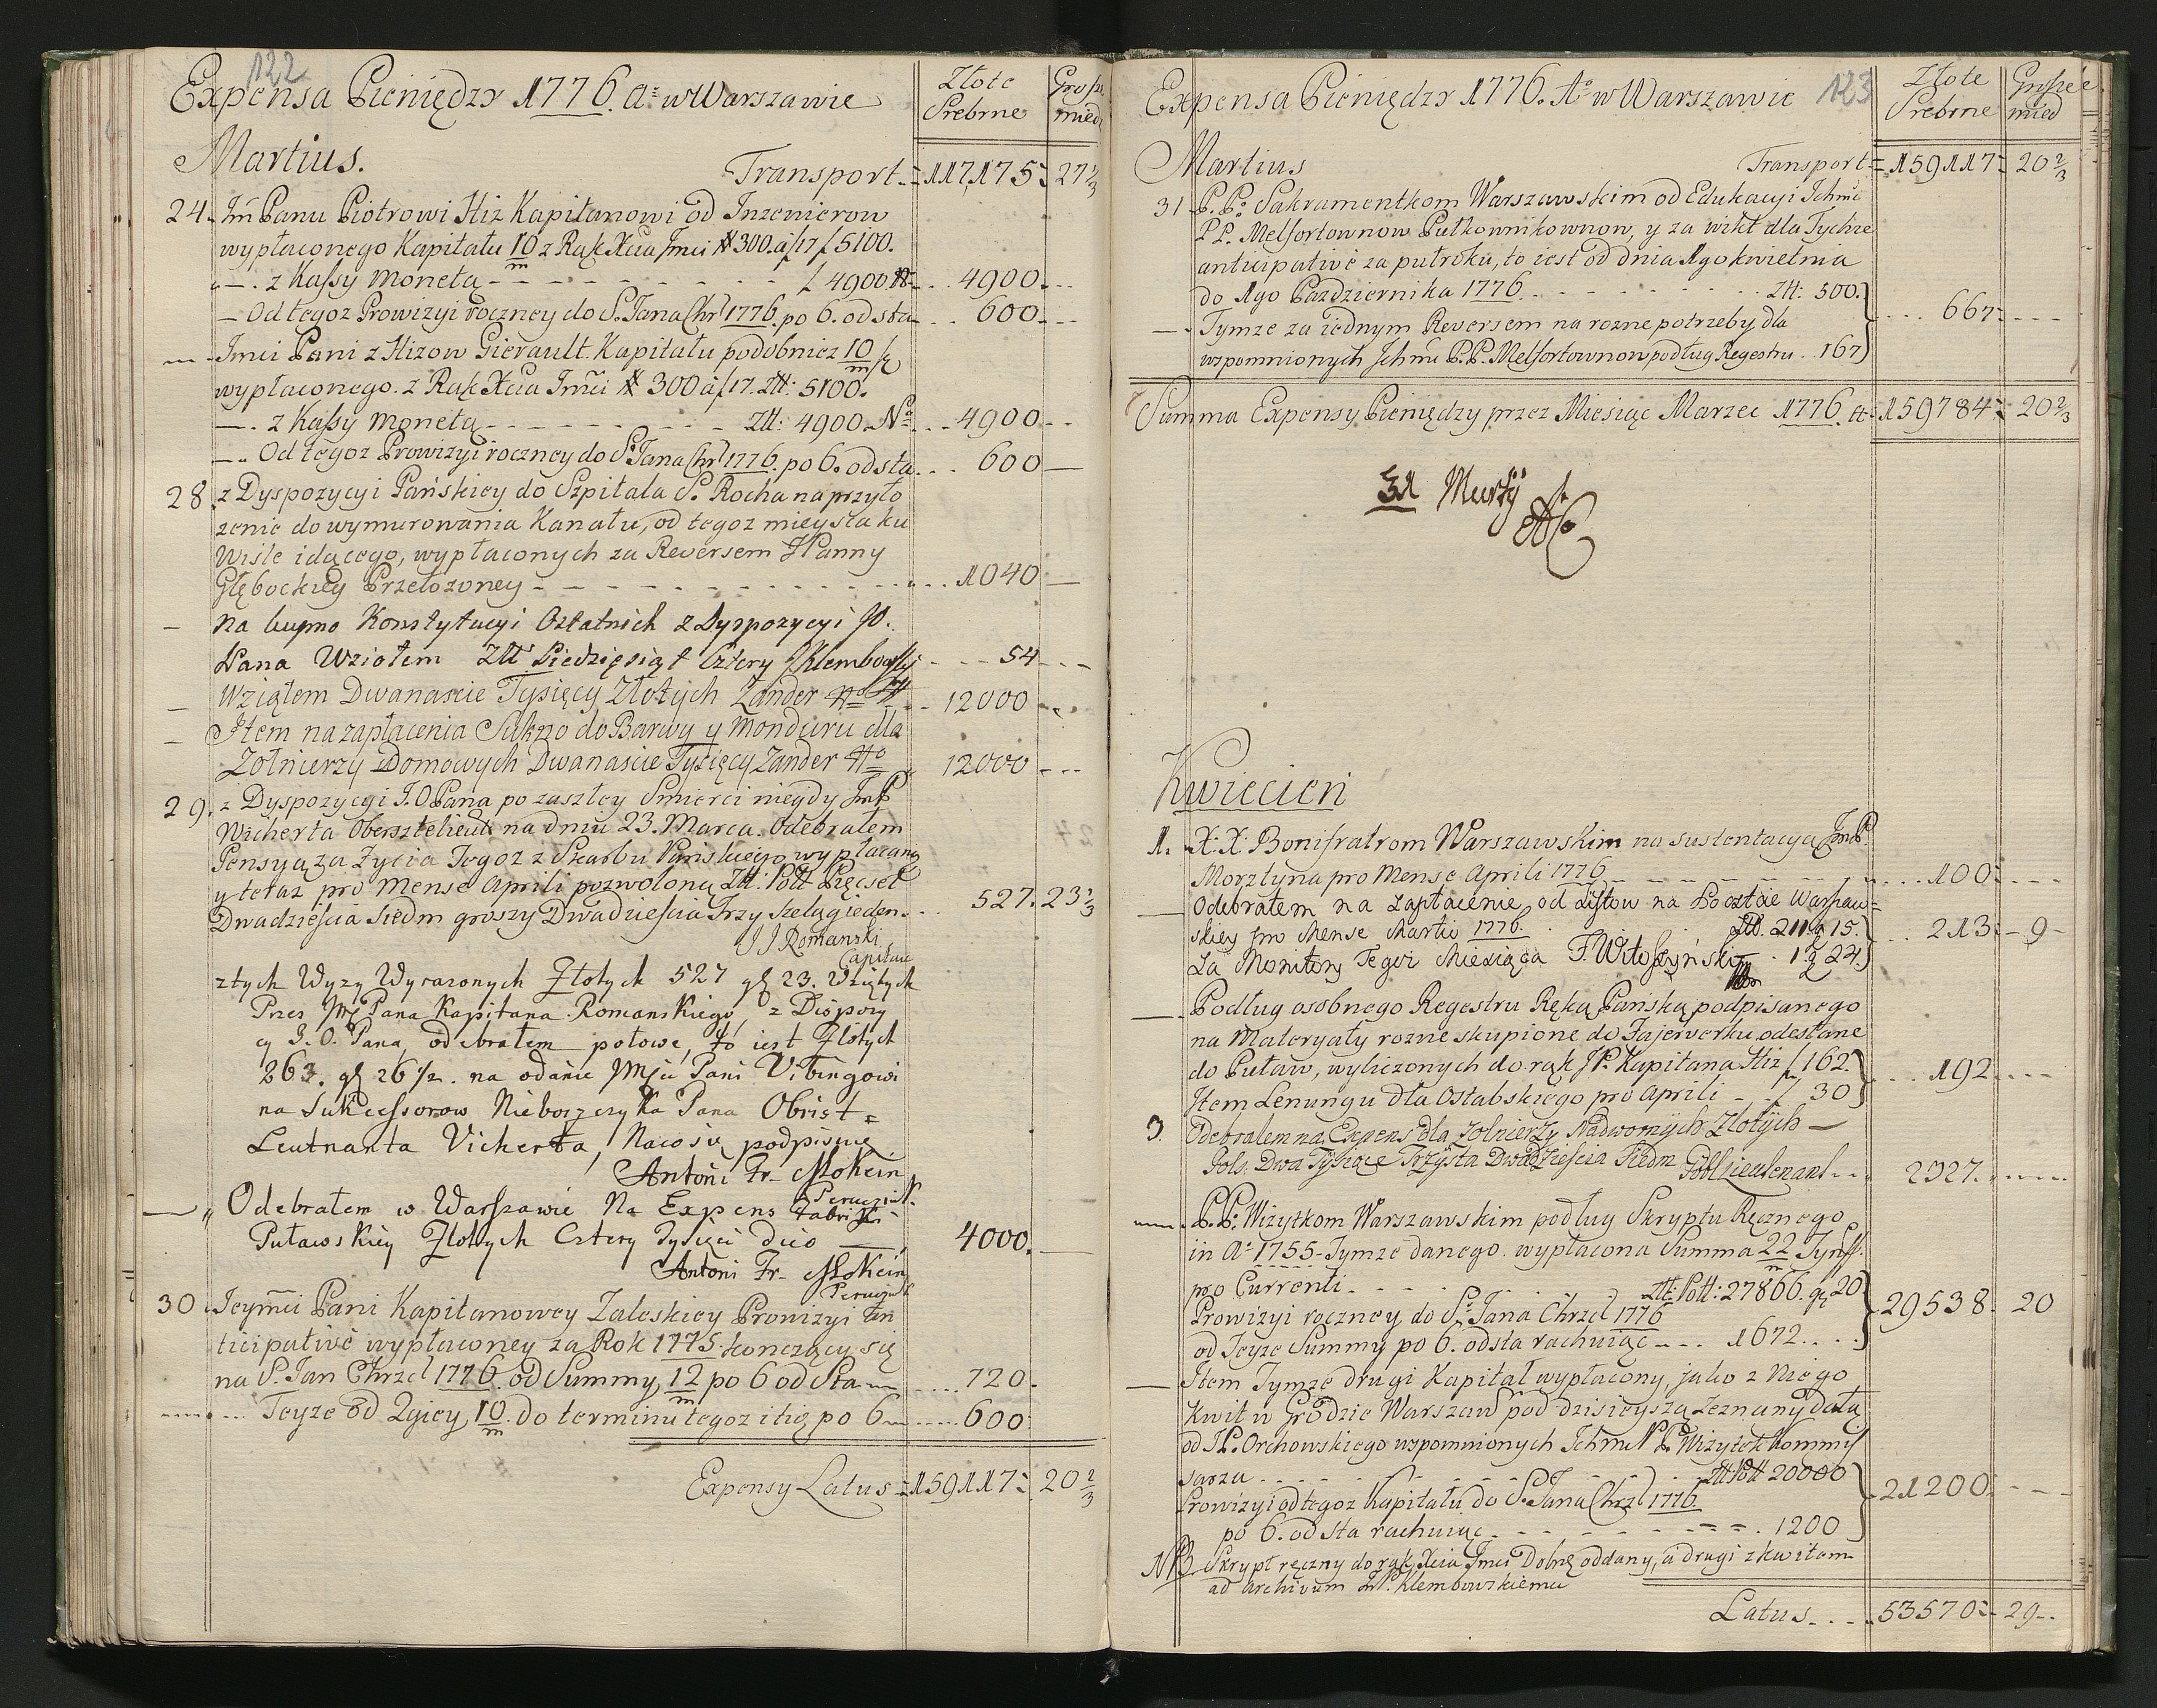 122
Expensa Pieniędzy 1776. A: w Warszawie
Złote Srebrne
Grosze mied
Martius.
Transport 117175 27 2/3
24. Jm̃ Panu Piotrowi Hiz Kapitanowi od Inzenierow
wypłaconego Kapitału 10/m z Rąk Xcia Jmci # 300. a f 17 f 5100.
— z Kassy Monetą f 4900 4900
— Od tegoz Prowizyi roczney do S. Jana Chrl 1776. po 6. od sta 600
Jmci Pani z Hizow Gierault. Kapitału podobniez 10/m
wypłaconego z Rąk Xcia Jmci # 300 a f 17. Ztt: 5100.
— z Kassy Monetą Ztt: 4900 No 4900
— Od tegoz Prowizyi roczney do S. Jana Chrl 1776. po 6. od sta 600 —
28. z Dyspozycyi Pańskiey do Szpitala S. Rocha na przyło
zenie do wymurowania Kanału, od tegoz mieysca ku
Wisle idącego, wypłaconych za Reversem JPanny
Głębockiey Przełozoney 1040 —
— Na kupno Konstytucyi Ostatnich z Dyspozycyi JO.
Pana Wziołem Ztt Piedzięsiąt Cztery JKlembowski 54
— Wziąłem Dwanascie Tysięcy Złotych Zander 12000
— Item na zapłacenia Sukno do Barwy y Monduru dla
Zołnierzy Domowych Dwanascie Tysięcy Zander 12000
29. z Dyspozycyi J.O Pana po zaszłey Smierci niegdy JmP
Wicherta Obersztelieut: na dniu 23. Marca. Odebrałem
Pensyą za Zycia Jegoz z Skarbu Pańskiego wypłacaną
y teraz pro Mense Aprili pozwoloną Ztt: Poll Pięcset
Dwadziescia Siedm groszy Dwadziescia Trzy szeląg ieden. 527. 23 1/3
J J Romanski
Capitaine
z tych Wyzy Wyrazonych Złotych 527 gł 23. Wziętych
Przes Jmć Pana Kapitana Romanskiego, z Dispozy
cy J.O. Pana, odebrałem połowe, to iest Złotych
263. gł 26 1/2. na odanie Jmści Pani Vibingowi
na Sukcessorow Nieboszczyka Pana Obrist=
Leutnanta Vicherta, Naco się podpisuię
Antoni Fr- Mokein
— „ Odebrałem w Warszawie Na Expens Fabryki
Puławskiey Złotych Cztery Tysięci dico — 4000. —
Antoni Fr- Mokein
30. Jeymci Pani Kapitanowey Zaleskiey Prowizyi An
ticipativè wypłaconey za Rok 1775. konczący się
na S. Jan Chrzcl 1776. od Summy 12/m po 6 od Sta 720.
Teyze od 2giey 10/m do terminu tegoz itię po 6 600
Expensy Latus 159117 20 2/3
123
Expensa Pieniędzy 1776. Ao w Warszawie
Złote Srebrne
Grosze mied
Martius
Transport 159117 20 2/3
31. P.P. Sakramentkom Warszawskim od Edukacyi Ichmć
PP. Melfortownow Pułkownikownow, y za wikt dla Tychze
anticipativè za pułroku, to iest od dnia 1go kwietnia
do 1go Pazdziernika 1776. Ztt: 500.
— Tymze za iednym Reversem na rozne potrzeby dla 667
wspomnionych Ichmć P.P. Melfortownow podług Regestru 167
Summa Expensy Pieniędzy przez Miesiąc Marzec 1776. 159784 20 2/3
31 Martij
Kwiecień
1. X: X: Bonifratrom Warszawskim na sustentacyą JmP.
Morztyna pro Mense Aprili 1776 100
— Odebrałem na Zapłacenie od Listow na Poсztcie Warszaw=
skiey pro Mense Martio 1776. Ztt. 211 g 15. 213 9
za Monitory Tegoz Miesiąca F. Wołoszyński 1 g 24.
— Podług osobnego Regestru Ręką Pańską podpisanego
na Materyały rozne skupione do Fajerwerku odesłane
do Puław, wyliczonych do rąk JP. Kapitana Hiz f 162. 192
Item Lenungu dla Ostabskiego pro Aprili f 30
3. Odebralem na Expens dla Zolnierzy Nadwornych Zlotych —
Pols. Dwa Tysiące Trzysta Dwadziescia Siedm 2327.
P.P. Wizytkom Warszawskim podług Skryptu Ręcznego
in A: 1755. Tymze danego. wypłacona Summa 22/m Tynff.
pro Currenti Ztt: Poll: 27866. gr 20
Prowizyi roczney do S. Jana Chrzcl 1776 29538. 20
od Teyze Summy po 6. od sta rachuiąc 1672.
— Item Tymze drugi Kapitał wypłacony, jako z Niego
Kwit w Grodzie Warszaw pod dzisieyszą zeznany datą
od JP. Orchowskiego wspomnionych Ichmć P Wizytek Kommis
sarza Ztt Poll 20000
Prowizyi od tegoz Kapitału do S. Jana Chrzl 1776 21200
po 6. od sta rachuiąc 1200
NB. Skrypt ręczny do rąk Xcia Jmci Dobrę oddany, a drugi z kwitem
ad archivum JP. Klembowskiemu
Latus 53570 29